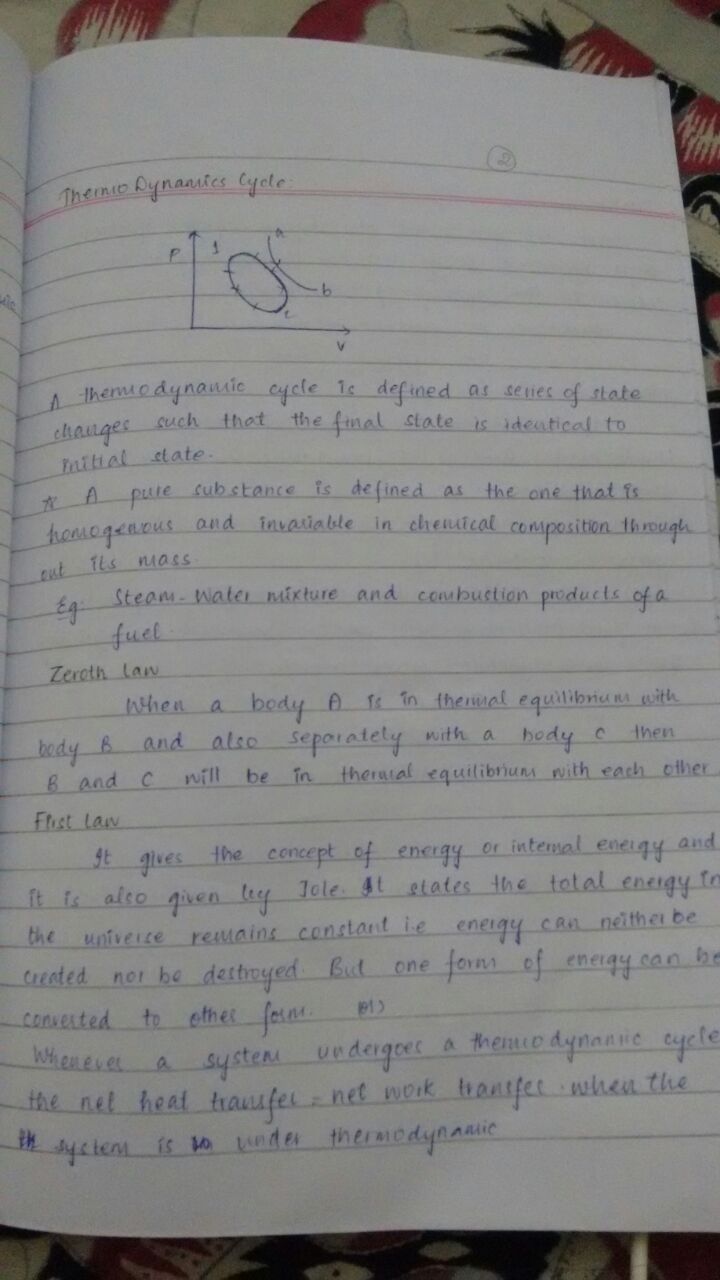 2
Thermo Dynamics Cycle.
P
1
a
b
2
V
A thermodynamic cycle is defined as series of state
changes such that the final state is identical to
initial state.
* A pure substance is defined as the one that is
homogenous and invariable in chemical composition through
out its mass.
Eg: Steam-Water mixture and combustion products of a
fuel.
Zeroth law
When a body A is in thermal equilibrium with
body B and also separately with a body C then
B and C will be in thermal equilibrium with each other
First law
It gives the concept of energy or internal energy and
it is also given by Jole. It states the total energy in
the universe remains constant i.e energy can neither be
created nor be destroyed. But one form of energy can be
converted to other form. (Or)
Whenever a system undergoes a thermodynamic cycle
the net heat transfer = net work transfer. when the
system is under thermodynamic